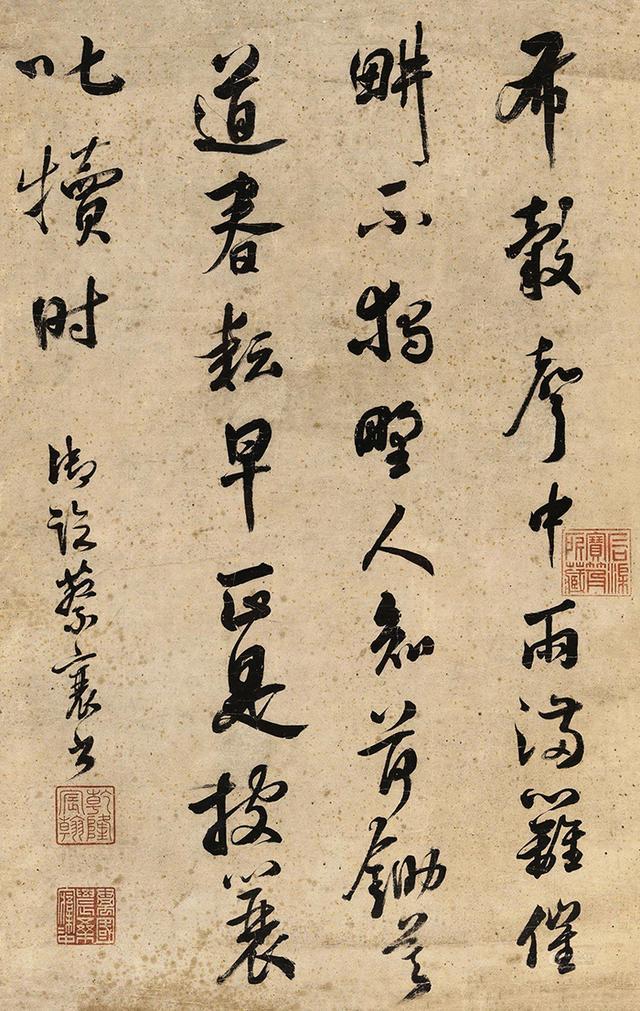 布穀聲中雨滿籬催
畊不獨野人知荷鋤莫
道春耘早正是披蓑
叱犢時
御臨蔡襄書
乾隆宸翰
石渠寶笈所藏